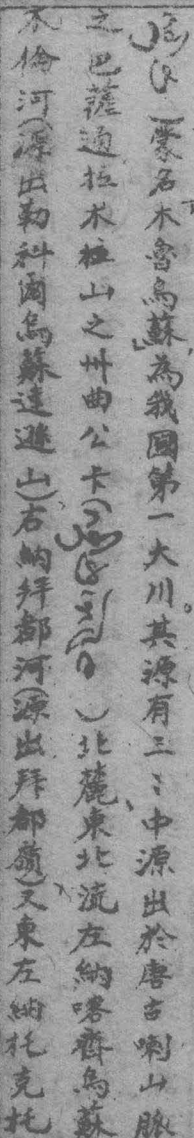 （蒙名木魯烏蘇」為我國第一大川。其源有三：中源出於唐古喇山脈
之巴薩通拉木拉山之卅曲公卡（）北麓、東北流左納喀齊烏蘇
木倫河（源出勒科爾烏蘇達遜山）、右納拜都河（源出拜都嶺）、又東左納托克托